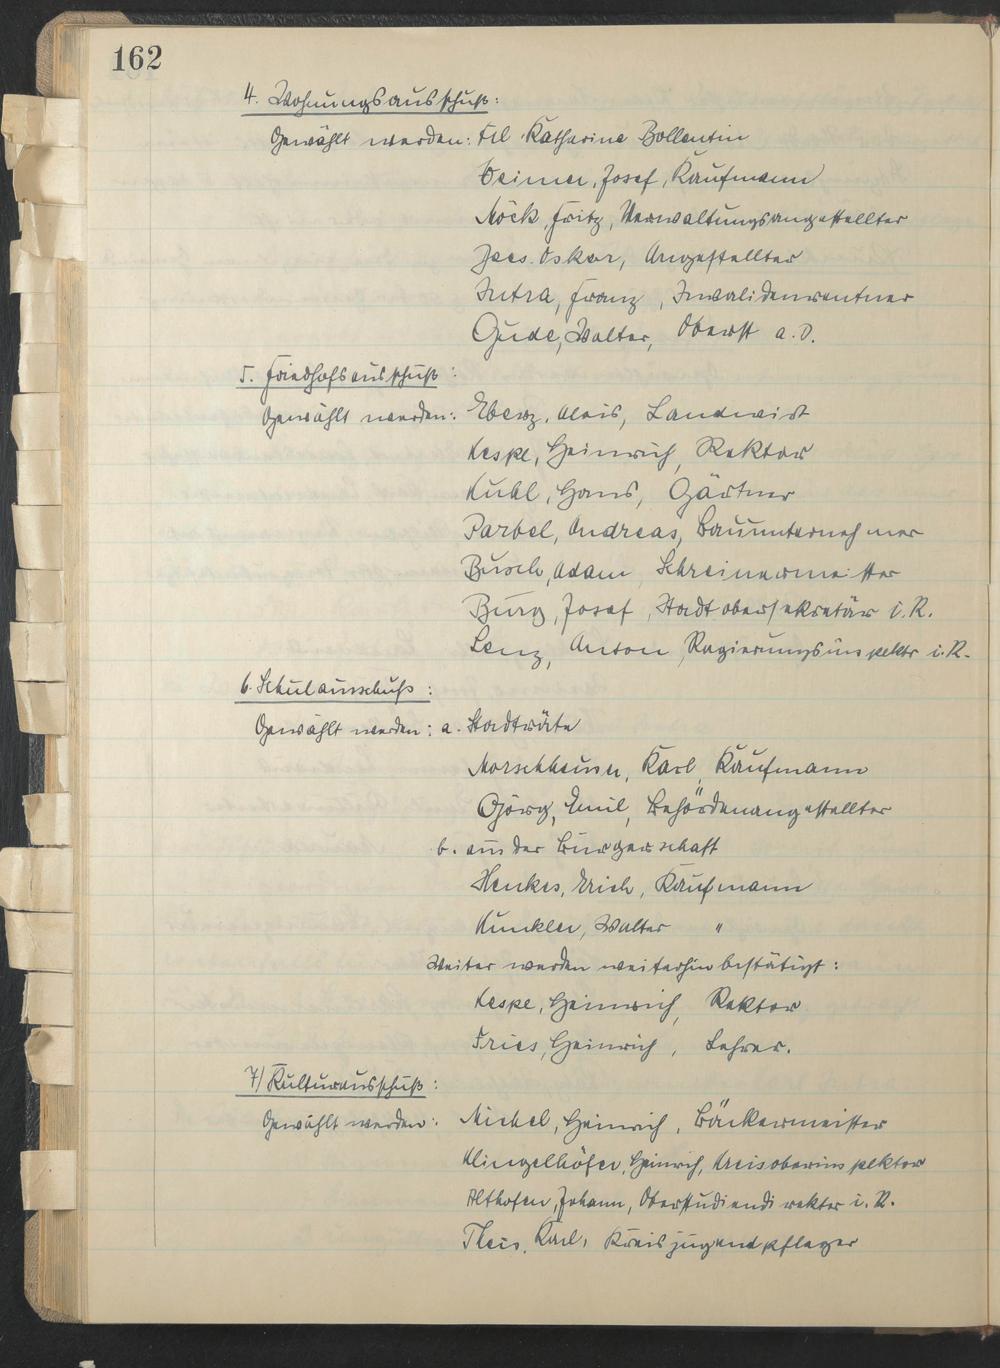 162
4. Wohnungsausschuß:
Gewählt werden: Frl. Katharina Bollentin
Weimer, Josef, Kaufmann
Möck, Fritz, Verwaltungsangestellter
Oskar, Angestellter
Intra, Franz, Invalidenrentner
Gude, Walter, Oberst a.D.
5. Friedhofsausschuß:
Gewählt werden: Eberz, Alois, Landwirt
Kespe, Heinrich, Rektor
Kuhl, Hans, Gärtner
Parbel, Andreas, Bauunternehmer
Busch, Adam Schreinermeister
Burg, Josef, Stadtobersekretär i.R.
Lenz, Anton, Regierungsinspektor i.R.
6. Schulausschuß:
Gewählt werden: a. Stadträte
Morschheuser, Karl, Kaufmann
Görg, Emil, Behördenangestellter
b. aus der Bürgerschaft
Henkes, Erich, Kaufmann
Kunkler, Walter "
Weiter werden weiterhin bestätigt:
Kespe, Heinrich, Rektor
Fries, Heinrich, Lehrer.
7/ Kulturausschuß:
Gewählt werden: Michel, Heinrich, Bäckermeister
Klingelhöfer, Heinrich, Kreisoberinspektor
Althofen, Johann, Oberstudiendirektor i.R.
Theis, Karl, Kreisjugendpfleger